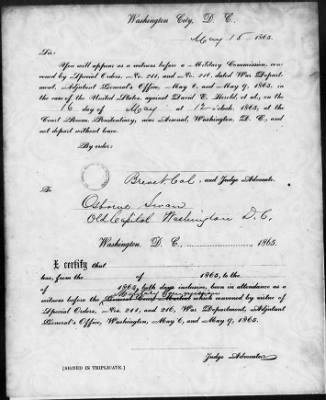 Washington City, D. C.
May 15 1865.
Sir:
You will appear as a witness before a Military Commission, con-
vened by Special Orders, Nos. 211, and No. 216, dated War Depart-
ment, Adjutant General's Office, May 6, and May 9, 1865, in
the case of the United States, against David E. Herold, et al., on the
16 day of May at 12 o'clock, 1865, at the
Court Room Penitentiary, near Arsenal, Washington, D. C., and
not depart without leave.
By order:
Brevet Col, and Judge Advocate.
To
Osborne Swan
Old Capitol Washington D.C.
Washington, D. C. 1865.
I certify that
has, from the of 1865, to the
of 1865, both days inclusive, been in attendance as a
Military Commission
witness before the General Court Martial which convened by virtue of
Special Orders, Nos. 211, and 216, War Department, Adjutant
General's Office, Washington, May 6, and May 9, 1865.
Judge Advocate
[SIGNED IN TRIPLICATE.]